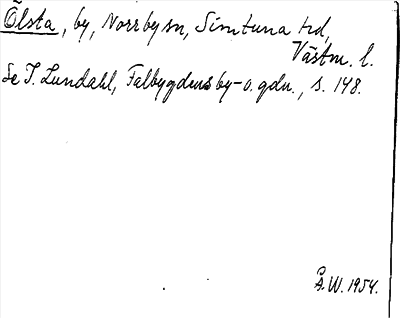 Ölsta, by, Norrby sn, Simtuna hd,
Västm. l.
Se I. Lundahl, Falbygdens by- o. gdn., s. 148.
Å.W. 1954.